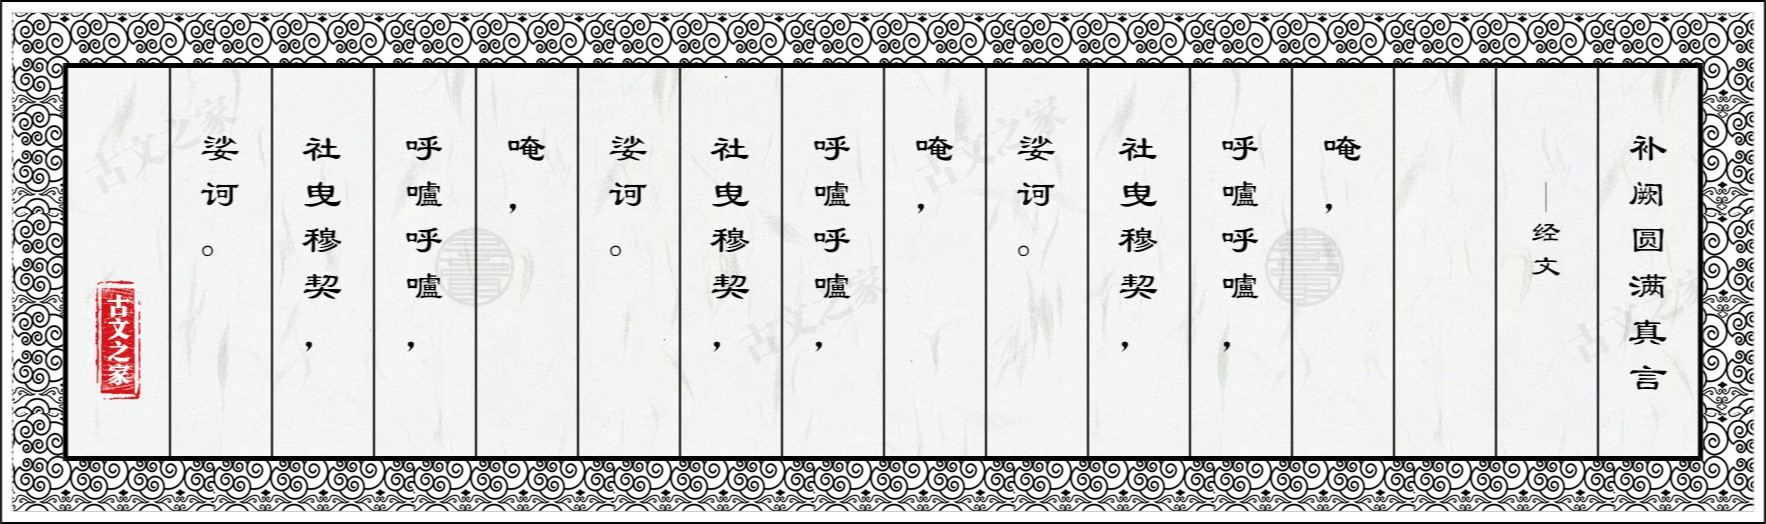 补阙圆满真言
—经文
唵，
呼嚧呼嚧，
社曳穆契，
娑诃。
唵，
呼嚧呼嚧，
社曳穆契，
娑诃。
唵，
呼嚧呼嚧，
社曳穆契，
娑诃。
古文之家